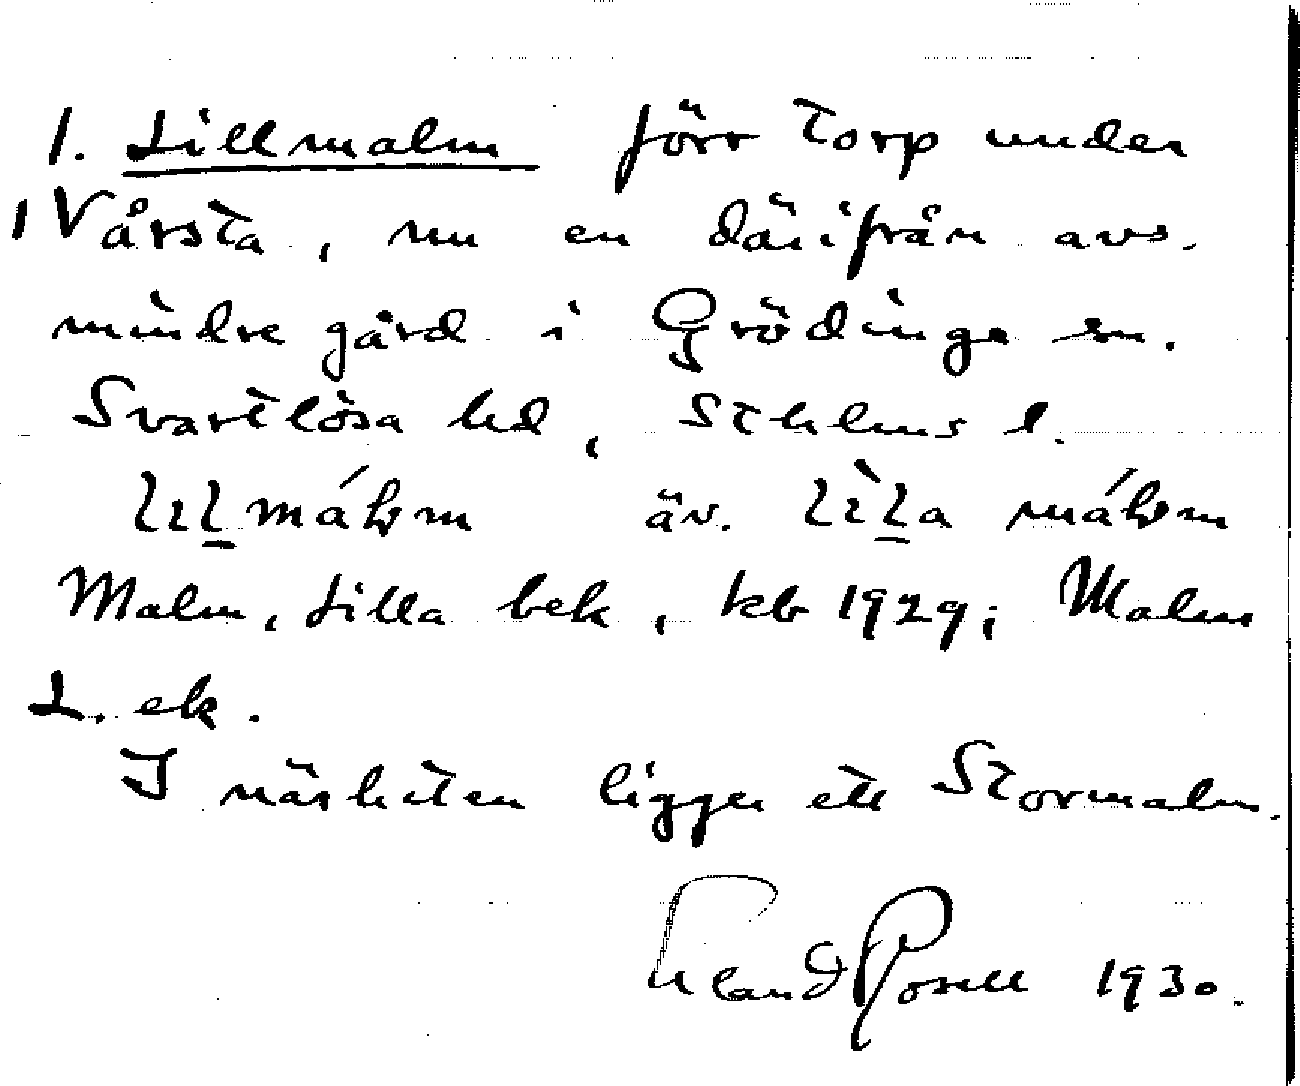 1. Lillmalm förr torp under
1 Vårsta, nu en därifrån avs.
mindre gård i Grödinge sn.
Svartlösa hd, Sthlms l.
lilmáľm äv. lìla máľm
Malm, Lilla bek, kb 1929; Malm
L. ek.
I närheten ligger ett Stormalm.
Erland Rosell 1930.